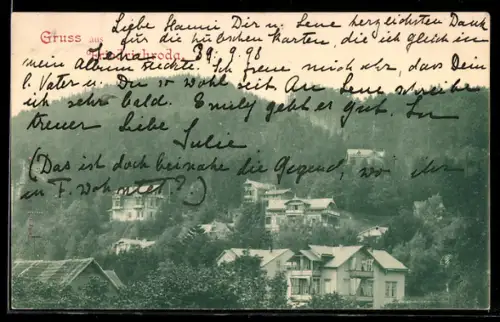 Liebe Mami Dir u. Lene herzlichsten Dank
für die hübschen Karten, die ich gleich in
Gruss aus
Friedrichroda.
Jena 29.9.98
mein Album steckte. Ich freue mich sehr, dass Dein
l. Vater u. Du so wohl seit. An Lene schreibe
ich sehr bald. Emily geht es gut. In
treuer Liebe
Julie
(Das ist doch beinahe die Gegend, wo ihr
in F. wohntet?)